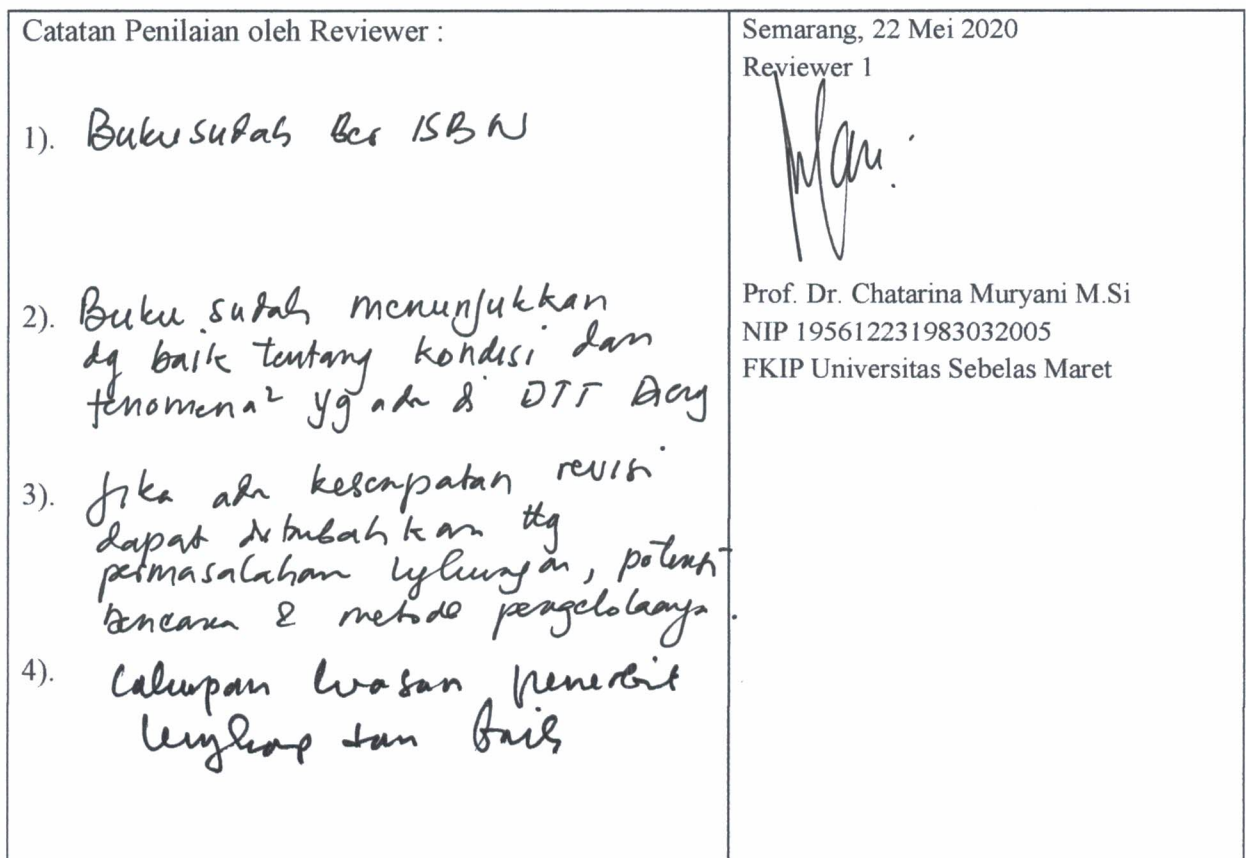 Catatan Penilaian oleh Reviewer :
1). Buku sudah Ber ISBN
2). Buku sudah menunjukkan
dg baik tentang kondisi dan
fenomena² yg ada di DTT Dieng
3). Jika ada kesempatan revisi
dapat ditambahkan ttg
permasalahan lingkungan, potensi
bencana & metode pengelolaanya.
4). Cakupan luasan penerbit
lengkap dan baik
Semarang, 22 Mei 2020
Reviewer 1
Prof. Dr. Chatarina Muryani M.Si
NIP 195612231983032005
FKIP Universitas Sebelas Maret